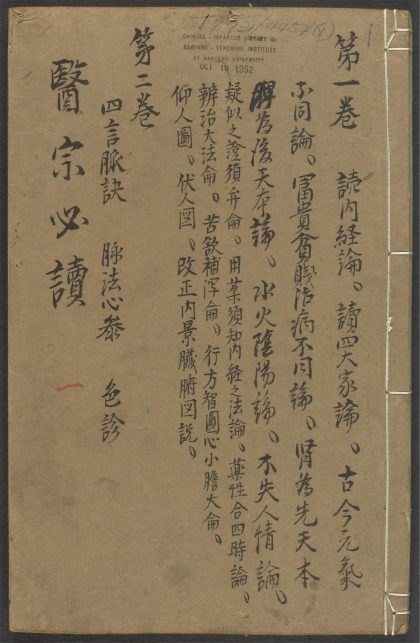 第一卷　讀內経論、讀四大家論、古今元氣
不同論、冨貴貧賤治病不同論、腎為先天本
脾為後天本論、水火陰陽論、不失人情論、
疑似之證須弁侖、用菜須知內経之法論、藥性合四時論、
辨治大法侖、苦欲補瀉侖、行方智圓心小膽大侖、
仰人圖、伏人図、改正內景臟腑図説、
第二卷
四言脈訣　脉法心叅　色診
醫宗必讀
一
CHINESE - JAPANESE LIBRARY OF
HARVARD - YENCHING INSTITUTE
AT HARVARD UNIVERSITY
OCT 16 1952